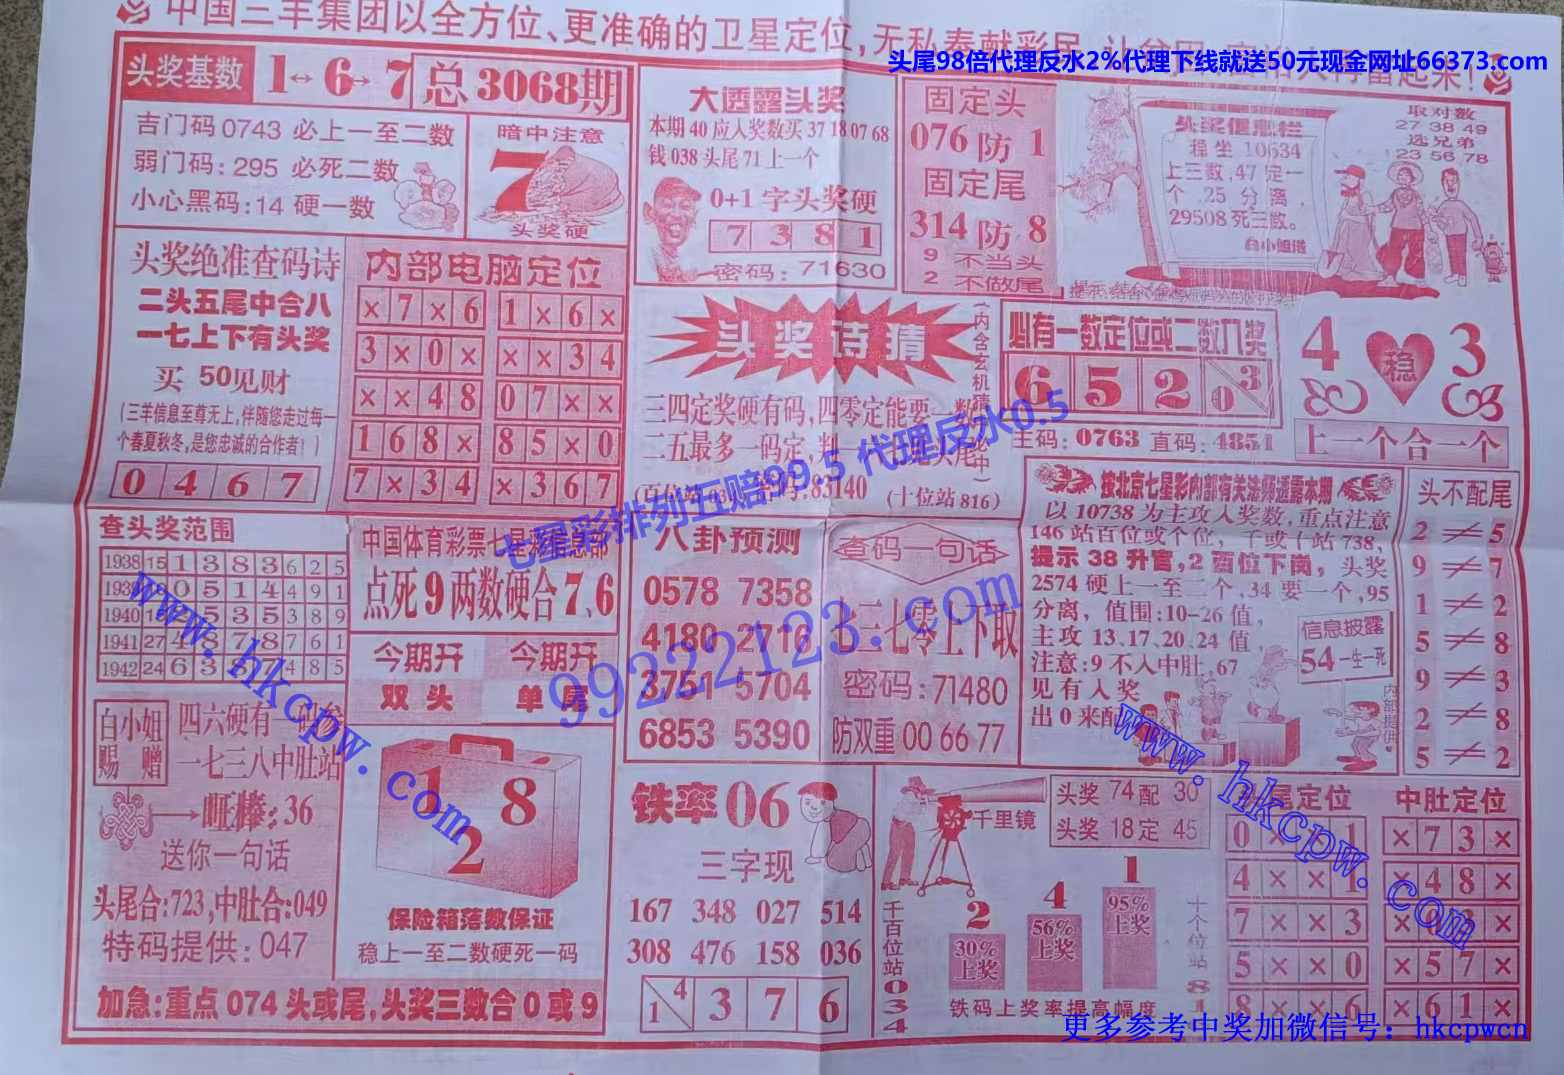 中国三羊集团以全方位、更准确的卫星定位,无私奉献彩民
头尾98倍代理反水2%代理下线就送50元现金网址66373.com
头奖基数 1↔6→7 总3068期
吉门码0743 必上一至二数
弱门码:295 必死二数
小心黑码:14 硬一数
暗中注意
7
头奖硬
大透露头奖
本期40应入奖数买37 18 07 68
钱038头尾71上一个
0+1字头奖硬
7 3 8 1
密码:71630
固定头
076防1
固定尾
314防8
9 不当头
2 不做尾
头奖信息栏
稳坐10634
上三数,47定一
个.25分离,
29508死三数。
白小姐谐
取对数
27 38 49
选兄弟
23 56 78
头奖绝准查码诗
二头五尾中合八
一七上下有头奖
买 50见财
(三羊信息至尊无上,伴随您走过每一
个春夏秋冬,是您忠诚的合作者!)
0 4 6 7
内部电脑定位
×7×6 1×6×
3×0× ××34
××48 07××
168× 85×0
7×34 ×367
头奖诗猜
(内含玄机猜
中)
三四定奖硬有码,四零定能要一数
二五最多一码定,判
(百位站
83140
(十位站816)
必有一数定位或二数入奖
6 5 2 0/3
主码:0763 直码:4851
4 稳 3
上一个合一个
七星彩排列五赔99.5 代理反水0.5
查头奖范围
1938 15 1 3 8 3 6 2 5
0 5 1 4 4 9 1
1940
5 3 5 3 8 9
1941 27 4 8 7 8 7 6 1
1942 24 6 3
4 8 5
中国体育彩票七星
点死9两数硬合7、6
今期开
双头
今期开
单尾
八卦预测
0578 7358
4180 2716
3751 5704
6853 5390
查码一句话
七三七零上下取
密码:71480
防双重00 66 77
按北京七星彩内部有关法师透露本期
以10738为主攻入奖数,重点注意
146站百位或个位,千或十站738,
提示38升官,2百位下岗,头奖
2574硬上一至二个,34要一个,95
分离,值围:10-26值,
主攻13,17,20,24值,
注意:9不入中肚,67
见有入奖
出0来配
信息披露
54一生一死
头不配尾
2≠5
9≠7
1≠2
5≠8
9≠3
2≠8
5≠2
www.hkcpw.com
99222123.com
www.hkcpw.com
白小姐
赐赠
四六硬有一
一七三八中肚站
旺棒:36
送你一句话
头尾合:723,中肚合:049
特码提供:047
1 8
2
保险箱落数保证
稳上一至二数硬死一码
加急:重点074头或尾,头奖三数合0或9
铁率06
三字现
167 348 027 514
308 476 158 036
1/4 3 7 6
千里镜
头奖 74配 30
头奖 18定 45
千百位站034
2
30%
上奖
4
56%
上奖
1
95%
上奖
十个位站81
铁码上奖率提高幅度
尾定位
0××1
4××1
7××3
5××0
8××6
中肚定位
×73×
×48×
×57×
×61×
更多参考中奖加微信号: hkcpwcn